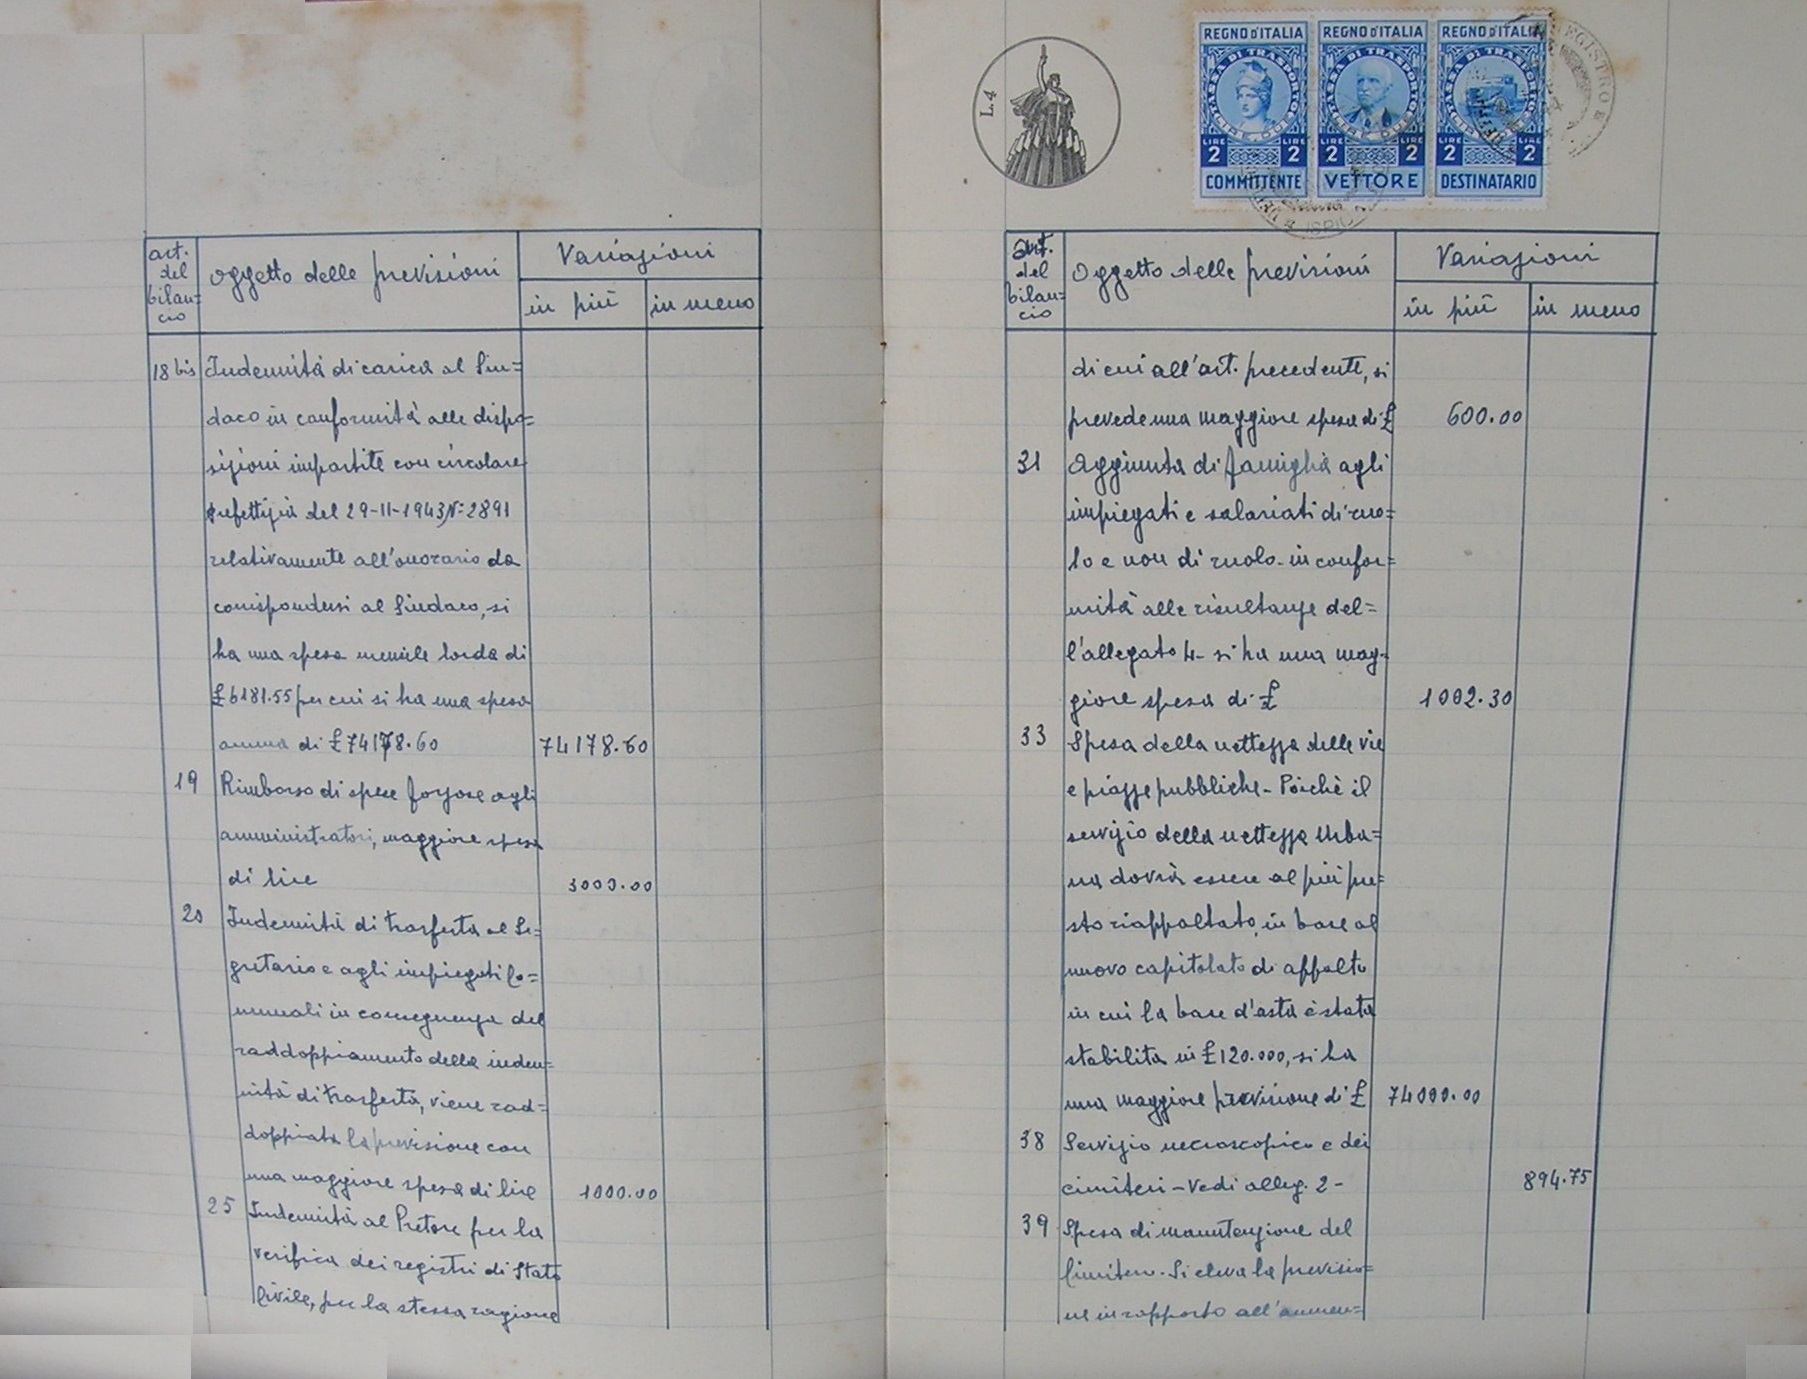 art.
del
bilan=
cio
Oggetto delle previsioni
Variazioni
in più
in meno
18 bis
Indennità di carica al Sin=
daco in conformità alle dispo=
sizioni impartite con circolare
prefettizia del 29-11-1943 N: 2891
relativamente all'onorario da
corrispondersi al Sindaco, si
ha una spesa mensile lorda di
£6181.55 per cui si ha una spesa
annua di £74178.60
74178.60
19
Rimborso di spese forzose agli
amministratori, maggiore spesa
di lire
3000.00
20
Indennità di trasferta al Se=
gretario e agli impiegati Co=
munali in conseguenza del
raddoppiamento della inden=
nità di trasferta, viene rad=
doppiata la previsione con
una maggiore spesa di lire
1000.00
25
Indennità al Pretore per la
verifica dei registri di Stato
Civile, per la stessa ragione
L.4
REGNO D'ITALIA
TASSA DI TRASPORTO
LIRE DUE
LIRE 2
LIRE 2
COMMITTENTE
REGNO D'ITALIA
TASSA DI TRASPORTO
LIRE DUE
LIRE 2
LIRE 2
VETTORE
REGNO D'ITALIA
TASSA DI TRASPORTO
LIRE 2
LIRE 2
DESTINATARIO
REGISTRO
art.
del
bilan=
cio
Oggetto delle previsioni
Variazioni
in più
in meno
di cui all'art. precedente, si
prevede una maggiore spesa di £
600.00
31
Aggiunta di famiglia agli
impiegati e salariati di ruo=
lo e non di ruolo - in confor=
mità alle risultanze del=
l'allegato 4 - si ha una mag-
giore spesa di £
1002.30
33
Spesa della nettezza delle vie
e piazze pubbliche - Poichè il
servizio della nettezza Urba=
na dovrà essere al più pre=
sto riappaltato, in base al
nuovo capitolato di appalto
in cui la base d'asta è stata
stabilita in £120.000, si ha
una maggiore previsione di £
74000.00
38
Servizio necroscopico e dei
cimiteri - Vedi alleg. 2 -
894.75
39
Spesa di manutenzione del
Cimitero. Si eleva la previsio=
ne in rapporto all'aumen=